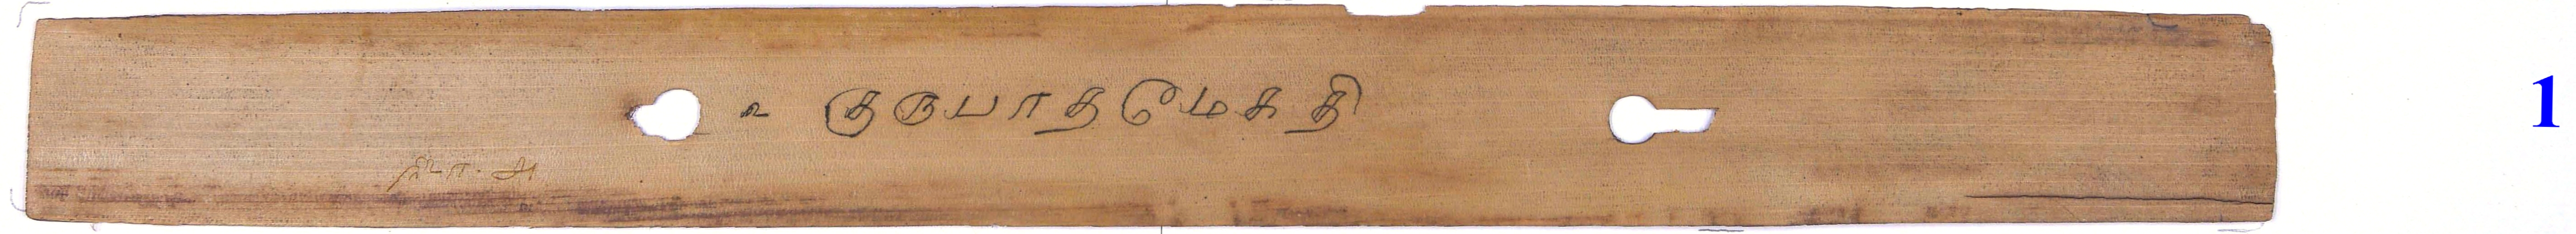 உ குருபாதமேகதி
1